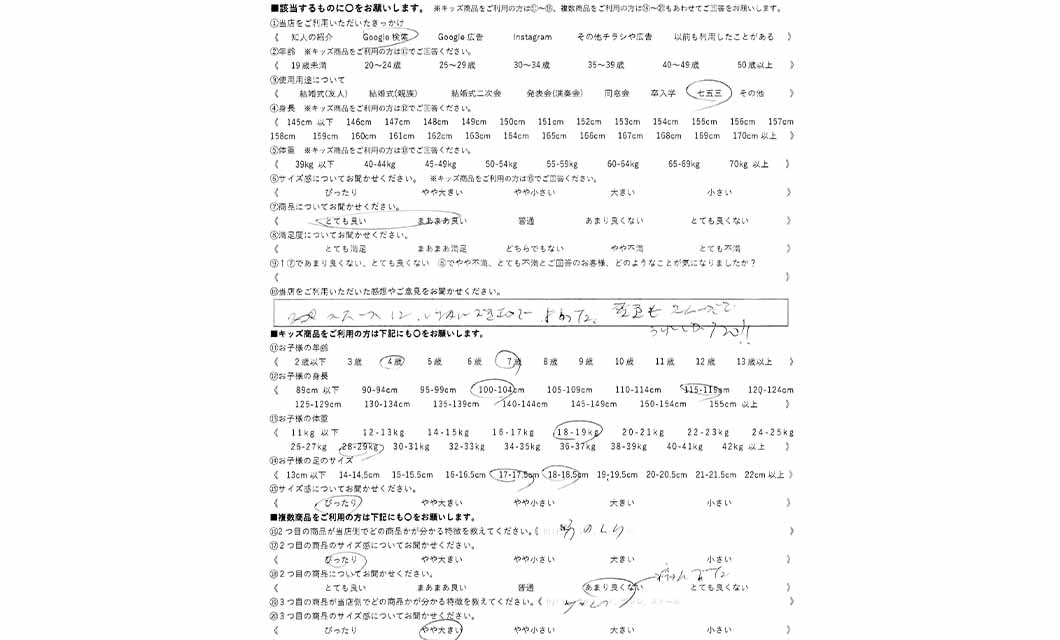 ■該当するものに〇をお願いします。 ※キッズ商品をご利用の方は⑪~⑮、複数商品をご利用の方は⑯~⑳もあわせてご回答をお願いします。
①当店をご利用いただいたきっかけ
《 知人の紹介 Google 検索 Google 広告 Instagram その他チラシや広告 以前も利用したことがある 》
②年齢 ※キッズ商品をご利用の方は⑪でご回答ください。
《 19歳未満 20~24歳 25~29歳 30~34歳 35~39歳 40~49歳 50歳以上 》
③使用用途について
《 結婚式(友人) 結婚式(親族) 結婚式二次会 発表会(演奏会) 同窓会 卒入学 七五三 その他 》
④身長 ※キッズ商品をご利用の方は⑫でご回答ください。
《 145cm 以下 146cm 147cm 148cm 149cm 150cm 151cm 152cm 153cm 154cm 155cm 156cm 157cm
158cm 159cm 160cm 161cm 162cm 163cm 164cm 165cm 166cm 167cm 168cm 169cm 170cm以上 》
⑤体重 ※キッズ商品をご利用の方は⑬でご回答ください。
《 39kg 以下 40-44kg 45-49kg 50-54kg 55-59kg 60-64kg 65-69kg 70kg 以上 》
⑥サイズ感についてお聞かせください。 ※キッズ商品をご利用の方は⑮でご回答ください。
《 ぴったり やや大きい やや小さい 大きい 小さい 》
⑦商品についてお聞かせください。
《 とても良い まあまあ良い 普通 あまり良くない とても良くない 》
⑧満足度についてお聞かせください。
《 とても満足 まあまあ満足 どちらでもない やや不満 とても不満 》
⑨1⑦であまり良くない、とても良くない ⑧でやや不満、とても不満とご回答のお客様、どのようなことが気になりましたか?
《 》
⑩当店をご利用いただいた感想やご意見をお聞かせください。
■キッズ商品をご利用の方は下記にも〇をお願いします。
⑪お子様の年齢
《 2歳以下 3歳 4歳 5歳 6歳 7歳 8歳 9歳 10歳 11歳 12歳 13歳以上 》
⑫お子様の身長
《 89cm 以下 90-94cm 95-99cm 100-104cm 105-109cm 110-114cm 115-119cm 120-124cm
125-129cm 130-134cm 135-139cm 140-144cm 145-149cm 150-154cm 155cm 以上 》
⑬お子様の体重
《 11kg 以下 12-13kg 14-15kg 16-17kg 18-19kg 20-21kg 22-23kg 24-25kg
26-27kg 28-29kg 30-31kg 32-33kg 34-35kg 36-37kg 38-39kg 40-41kg 42kg 以上 》
⑭お子様の足のサイズ
《 13cm以下 14-14.5cm 15-15.5cm 16-16.5cm 17-17.5cm 18-18.5cm 19-19.5cm 20-20.5cm 21-21.5cm 22cm以上 》
⑮サイズ感についてお聞かせください。
《 ぴったり やや大きい やや小さい 大きい 小さい 》
■複数商品をご利用の方は下記にも〇をお願いします。
⑯2つ目の商品が当店側でどの商品かが分かる特徴を教えてください。《 》
⑰2つ目の商品のサイズ感についてお聞かせください。
《 ぴったり やや大きい やや小さい 大きい 小さい 》
⑱2つ目の商品についてお聞かせください。
《 とても良い まあまあ良い 普通 あまり良くない とても良くない 》
⑲3つ目の商品が当店側でどの商品かが分かる特徴を教えてください。《 》
⑳3つ目の商品のサイズ感についてお聞かせください。
《 ぴったり やや大きい やや小さい 大きい 小さい 》